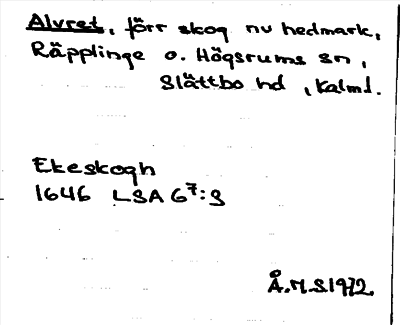 Alvret, förr skog nu hedmark,
Räpplinge o. Högsrums sn,
Slättbo hd, Kalm l.
Ekeskogh
1646 LSA G7:8
Å.M.S.1972.